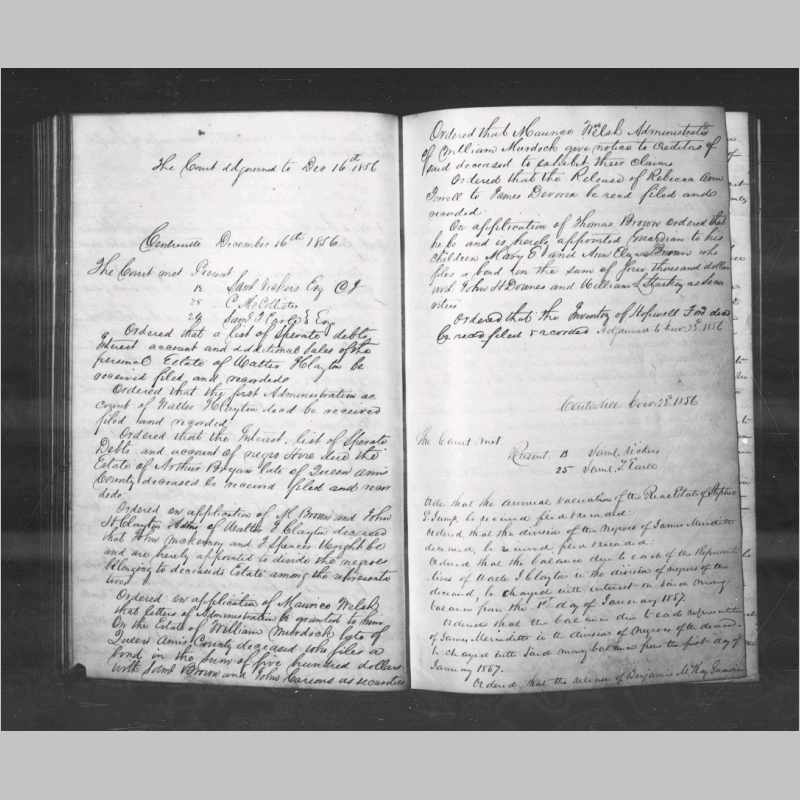 The Court adjourned to Dec 16th 1856
Centreville December 16th 1856
The Court met Present
18 Saml Vickers Esq CJ
28 C McCollister
24 Saml T Earle Esq
Ordered that a list of Sperate debts
Interest account and additional Sales of the
personal Estate of Walter J Clayton be
received filed and recorded
Ordered that the first Administration ac
count of Walter J Clayton decd be received
filed and recorded
Ordered that the Interest, list of Sperate
Debts and account of negro Hire decd the
Estate of Arthur Bryan late of Queen Anns
County deceased be received filed and recor
ded
Ordered on application of M Brown and John
H Clayton Adms of Walter J Clayton deceased
that John McKenney and J Spencer Wright be
and are hereby appointed to divide the negroes
belonging to deceaseds Estate among the representa
tives
Ordered on application of Maurice Welsh
that letters of Administration be granted to him
On the Estate of William Murdoch late of
Queen Anns County deceased who files a
bond in the sum of five hundred dollars
with Saml Brown and John as securities
Ordered that Maurice Welsh Administrator
of William Murdoch give notice to creditors of
said deceased to exhibit their claims
Ordered that the Release of Rebecca Ann
to James be read filed and
recorded
On application of Thomas Brown ordered that
he be and is hereby appointed Guardian to his
children Mary E and Ann Brown who
files a bond in the sum of four thousand dollars
with John H Downes and William L Starkey as secu
rities
Ordered that the Inventory of Hopewell Ford decd
be read filed & recorded Adjourned to 1856
Centreville 1856
The Court met
Present 18 Saml Vickers
25 Saml T Earle
Orde that the annual valuation of the Real Estate of Stephen
J Jump be received filed & recorded
Ordered that the division of the Negroes of James Meredith
deceased, be received filed & recorded
Ordered that the balance due to each of the Represent
tives of Walter J Clayton in the division of negroes of the
deceased, be charged with interest on said money
balance from the 1st day of January 1857.
Ordered that the balance due to each representative
of James Meredith in the division of Negroes of the deceased
be charged with said money balance from the first day of
January 1857.
Ordered, that the release of Benjamin McKay Guardian